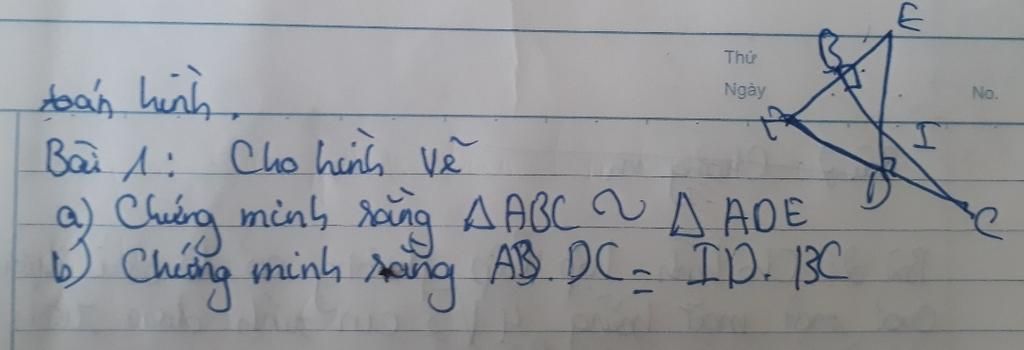 toán hình.
Bài 1: Cho hình vẽ
a) Chứng minh rằng △ABC ~ △ADE
b) Chứng minh rằng AB. DC = ID. BC
Thứ
Ngày
No.
E
B
A
I
D
C